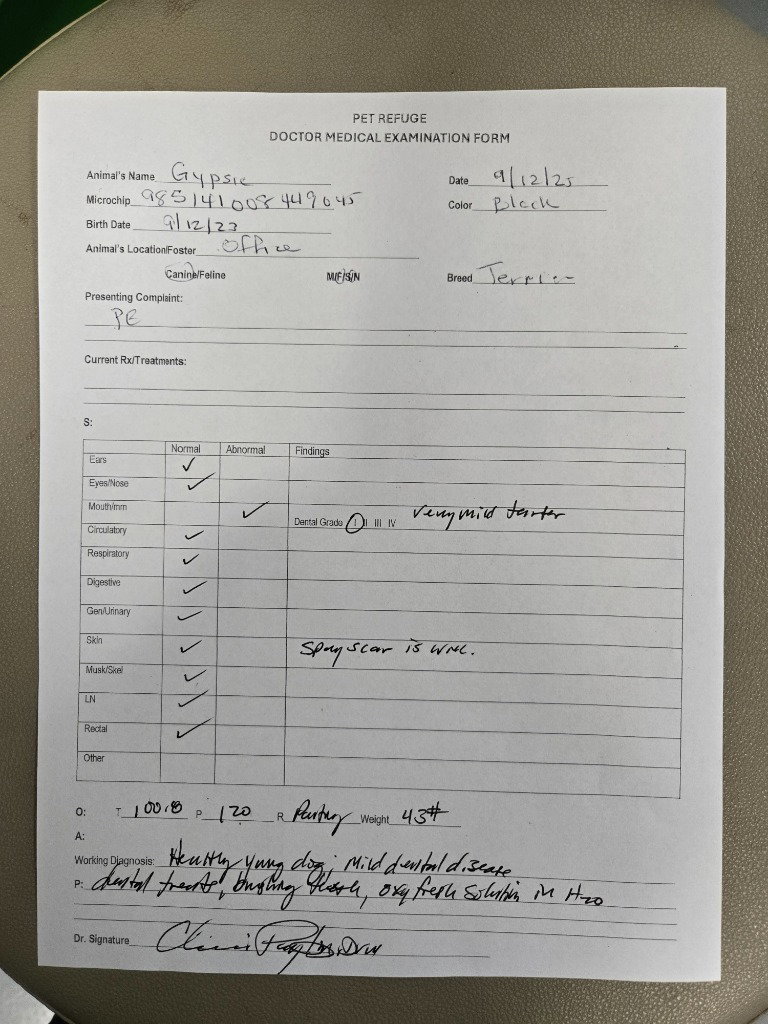 PET REFUGE
DOCTOR MEDICAL EXAMINATION FORM
Animal's Name Gypsie Date 9/12/25
Microchip 985141008449045 Color Black
Birth Date 9/12/23
Animal's Location/Foster Office
Canine/Feline M/F/S/N Breed Terrier
Presenting Complaint:
PE
Current Rx/Treatments:
S:
Normal Abnormal Findings
Ears ✓
Eyes/Nose ✓
Mouth/mm ✓ Dental Grade I II III IV Very mild tarter
Circulatory ✓
Respiratory ✓
Digestive ✓
Gen/Urinary ✓
Skin ✓ Spay scar is WNL.
Musk/Skel ✓
LN ✓
Rectal ✓
Other
O: T 100.8 P 120 R Panting Weight 43#
A:
Working Diagnosis: Healthy young dog; mild dental disease
P: dental treats, brushing teeth, oxy fresh solution in H2O
Dr. Signature DVM